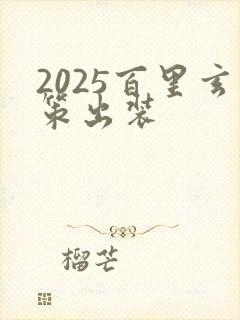 2025百里玄
策出装
榴芒